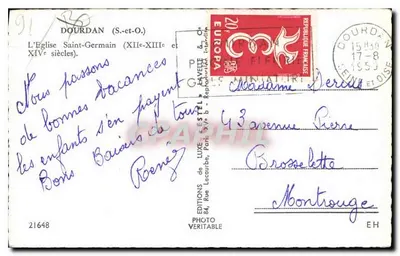 91
DOURDAN (S.-et-O.)
L'Eglise Saint-Germain (XIIe-XIIIe et
XIVe siècles).
Nous passons
de bonnes vacances
les enfants s'en payent
Bons Baisers de tous
René
21648
EDITIONS DE LUXE "ESTEL"
84, Rue Lecourbe, Paris
PHOTO
VERITABLE
20F
REPUBLIQUE FRANÇAISE
EUROPA
POSTES
DOURDAN
17-8
SEINE ET OISE
Madame
43 avenue Pierre
Brossolette
Montrouge
EH